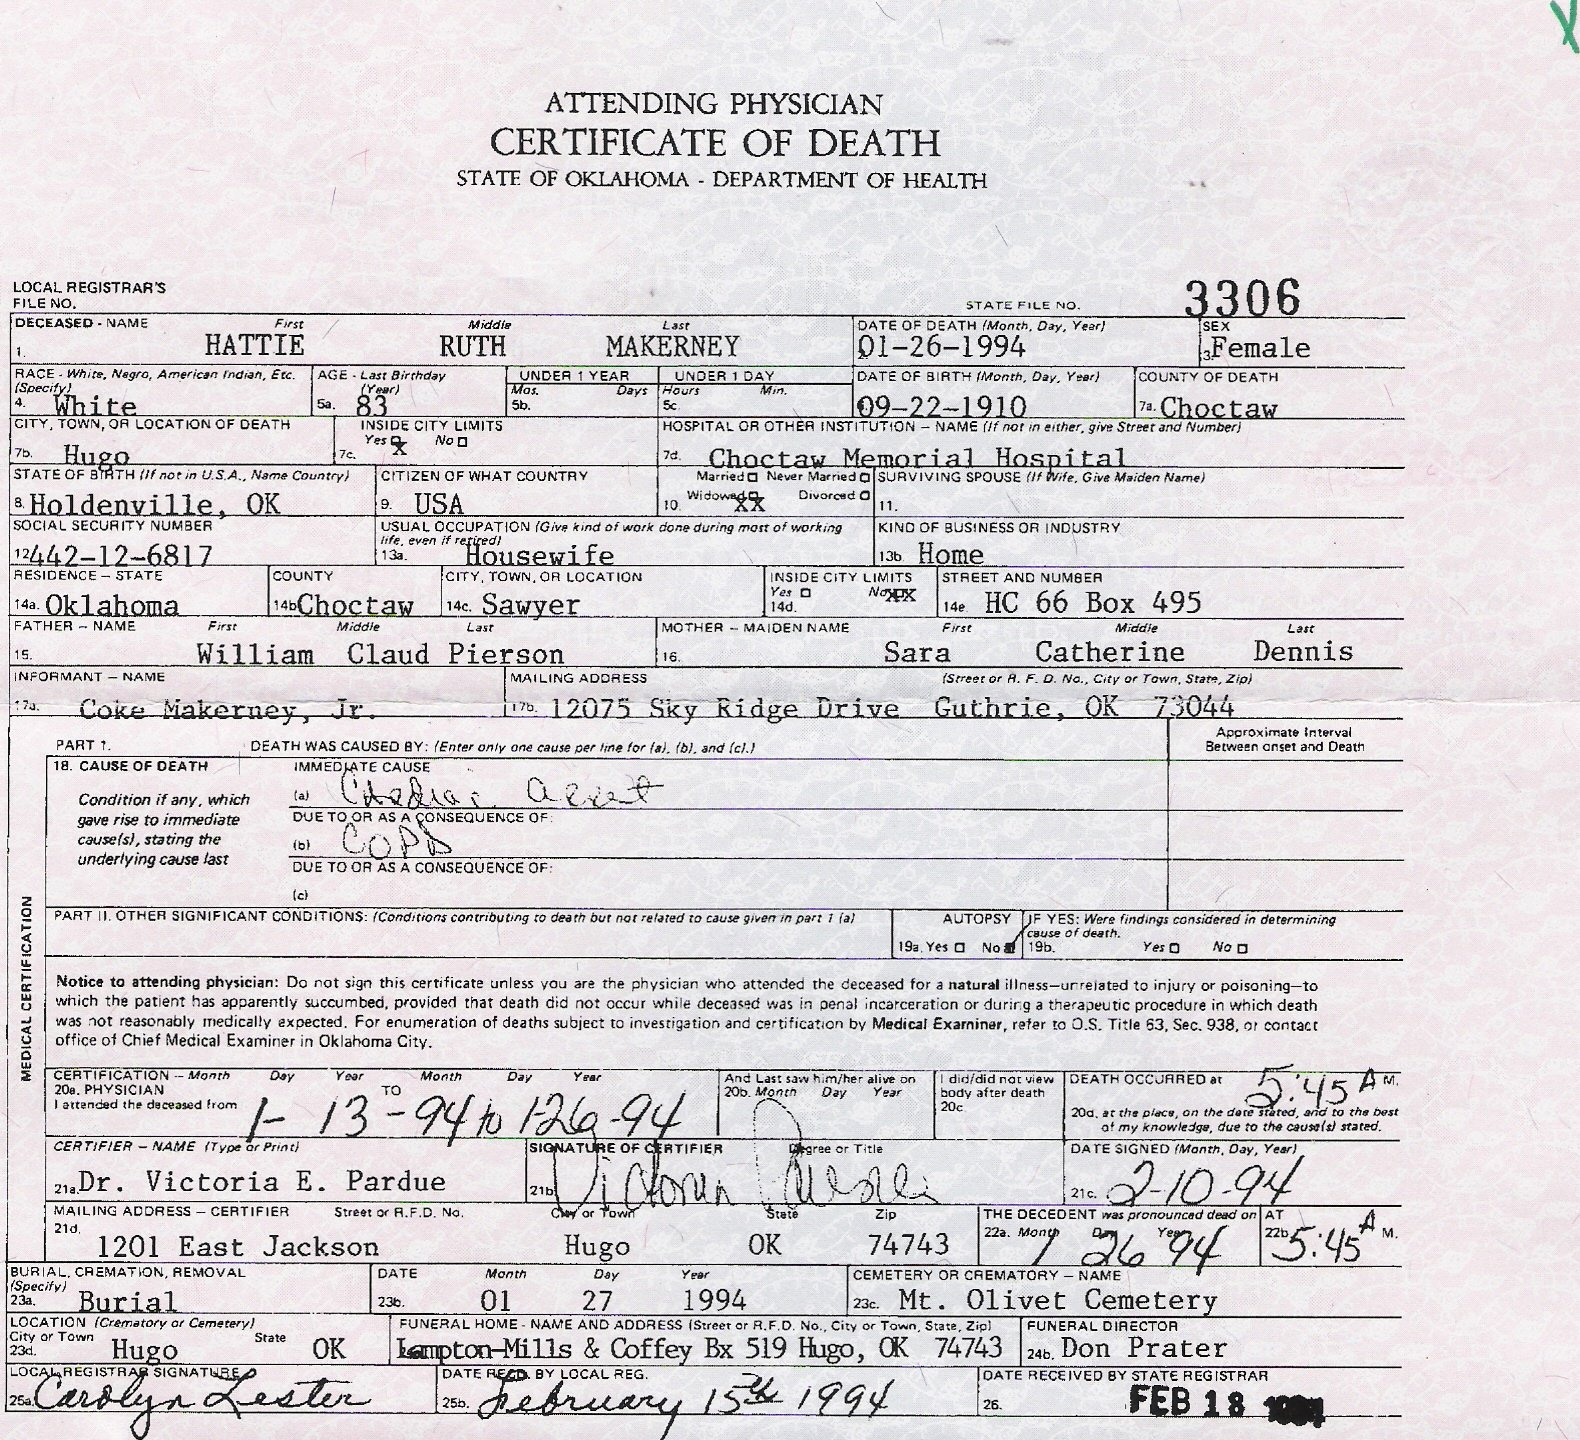 ATTENDING PHYSICIAN
CERTIFICATE OF DEATH
STATE OF OKLAHOMA - DEPARTMENT OF HEALTH
LOCAL REGISTRAR'S
FILE NO.
STATE FILE NO. 3306
DECEASED - NAME First Middle Last DATE OF DEATH (Month, Day, Year) SEX
1. HATTIE RUTH MAKERNEY 01-26-1994 3. Female
RACE - White, Negro, American Indian, Etc. AGE - Last Birthday UNDER 1 YEAR UNDER 1 DAY DATE OF BIRTH (Month, Day, Year) COUNTY OF DEATH
(Specify) (Year) Mos. Days Hours Min.
4. White 5a. 83 5b. 5c 09-22-1910 7a. Choctaw
CITY, TOWN, OR LOCATION OF DEATH INSIDE CITY LIMITS HOSPITAL OR OTHER INSTITUTION - NAME (If not in either, give Street and Number)
Yes X No
7b. Hugo 7c. 7d. Choctaw Memorial Hospital
STATE OF BIRTH (If not in U.S.A., Name Country) CITIZEN OF WHAT COUNTRY Married Never Married SURVIVING SPOUSE (If Wife, Give Maiden Name)
8. Holdenville, OK 9. USA 10. Widowed XX Divorced 11.
SOCIAL SECURITY NUMBER USUAL OCCUPATION (Give kind of work done during most of working KIND OF BUSINESS OR INDUSTRY
life, even if retired)
12 442-12-6817 13a. Housewife 13b. Home
RESIDENCE - STATE COUNTY CITY, TOWN, OR LOCATION INSIDE CITY LIMITS STREET AND NUMBER
Yes No XX
14a. Oklahoma 14b Choctaw 14c. Sawyer 14d. 14e. HC 66 Box 495
FATHER - NAME First Middle Last MOTHER - MAIDEN NAME First Middle Last
15. William Claud Pierson 16. Sara Catherine Dennis
INFORMANT - NAME MAILING ADDRESS (Street or R. F. D. No., City or Town, State, Zip)
17a. Coke Makerney, Jr. 17b. 12075 Sky Ridge Drive Guthrie, OK 73044
PART 1. DEATH WAS CAUSED BY: (Enter only one cause per line for (a), (b), and (c).) Approximate Interval
Between onset and Death
18. CAUSE OF DEATH IMMEDIATE CAUSE
Condition if any, which (a)
gave rise to immediate DUE TO OR AS A CONSEQUENCE OF:
cause(s), stating the (b) COPD
underlying cause last DUE TO OR AS A CONSEQUENCE OF:
(c)
MEDICAL CERTIFICATION
PART II. OTHER SIGNIFICANT CONDITIONS: (Conditions contributing to death but not related to cause given in part 1 (a) AUTOPSY IF YES: Were findings considered in determining
cause of death.
19a. Yes No 19b. Yes No
Notice to attending physician: Do not sign this certificate unless you are the physician who attended the deceased for a natural illness—unrelated to injury or poisoning—to
which the patient has apparently succumbed, provided that death did not occur while deceased was in penal incarceration or during a therapeutic procedure in which death
was not reasonably medically expected. For enumeration of deaths subject to investigation and certification by Medical Examiner, refer to O.S. Title 63, Sec. 938, or contact
office of Chief Medical Examiner in Oklahoma City.
CERTIFICATION - Month Day Year Month Day Year And Last saw him/her alive on I did/did not view DEATH OCCURRED at 5:45 A M.
20a. PHYSICIAN TO 20b. Month Day Year body after death
I attended the deceased from 1-13-94 to 1-26-94 20c. 20d. at the place, on the date stated, and to the best
of my knowledge, due to the cause(s) stated.
CERTIFIER - NAME (Type or Print) SIGNATURE OF CERTIFIER Degree or Title DATE SIGNED (Month, Day, Year)
21a. Dr. Victoria E. Pardue 21b. Victoria Pardue 21c. 2-10-94
MAILING ADDRESS - CERTIFIER Street or R.F.D. No. City or Town State Zip THE DECEDENT was pronounced dead on AT
21d. 22a. Month Day Year
1201 East Jackson Hugo OK 74743 1 26 94 22b. 5:45 A M.
BURIAL, CREMATION, REMOVAL DATE Month Day Year CEMETERY OR CREMATORY - NAME
(Specify)
23a. Burial 23b. 01 27 1994 23c. Mt. Olivet Cemetery
LOCATION (Crematory or Cemetery) FUNERAL HOME - NAME AND ADDRESS (Street or R.F.D. No., City or Town, State, Zip) FUNERAL DIRECTOR
City or Town State
23d. Hugo OK Lampton-Mills & Coffey Bx 519 Hugo, OK 74743 24b. Don Prater
LOCAL REGISTRAR SIGNATURE DATE RECD. BY LOCAL REG. DATE RECEIVED BY STATE REGISTRAR
25a. Carolyn Lester 25b. February 15th 1994 26. FEB 18 1994